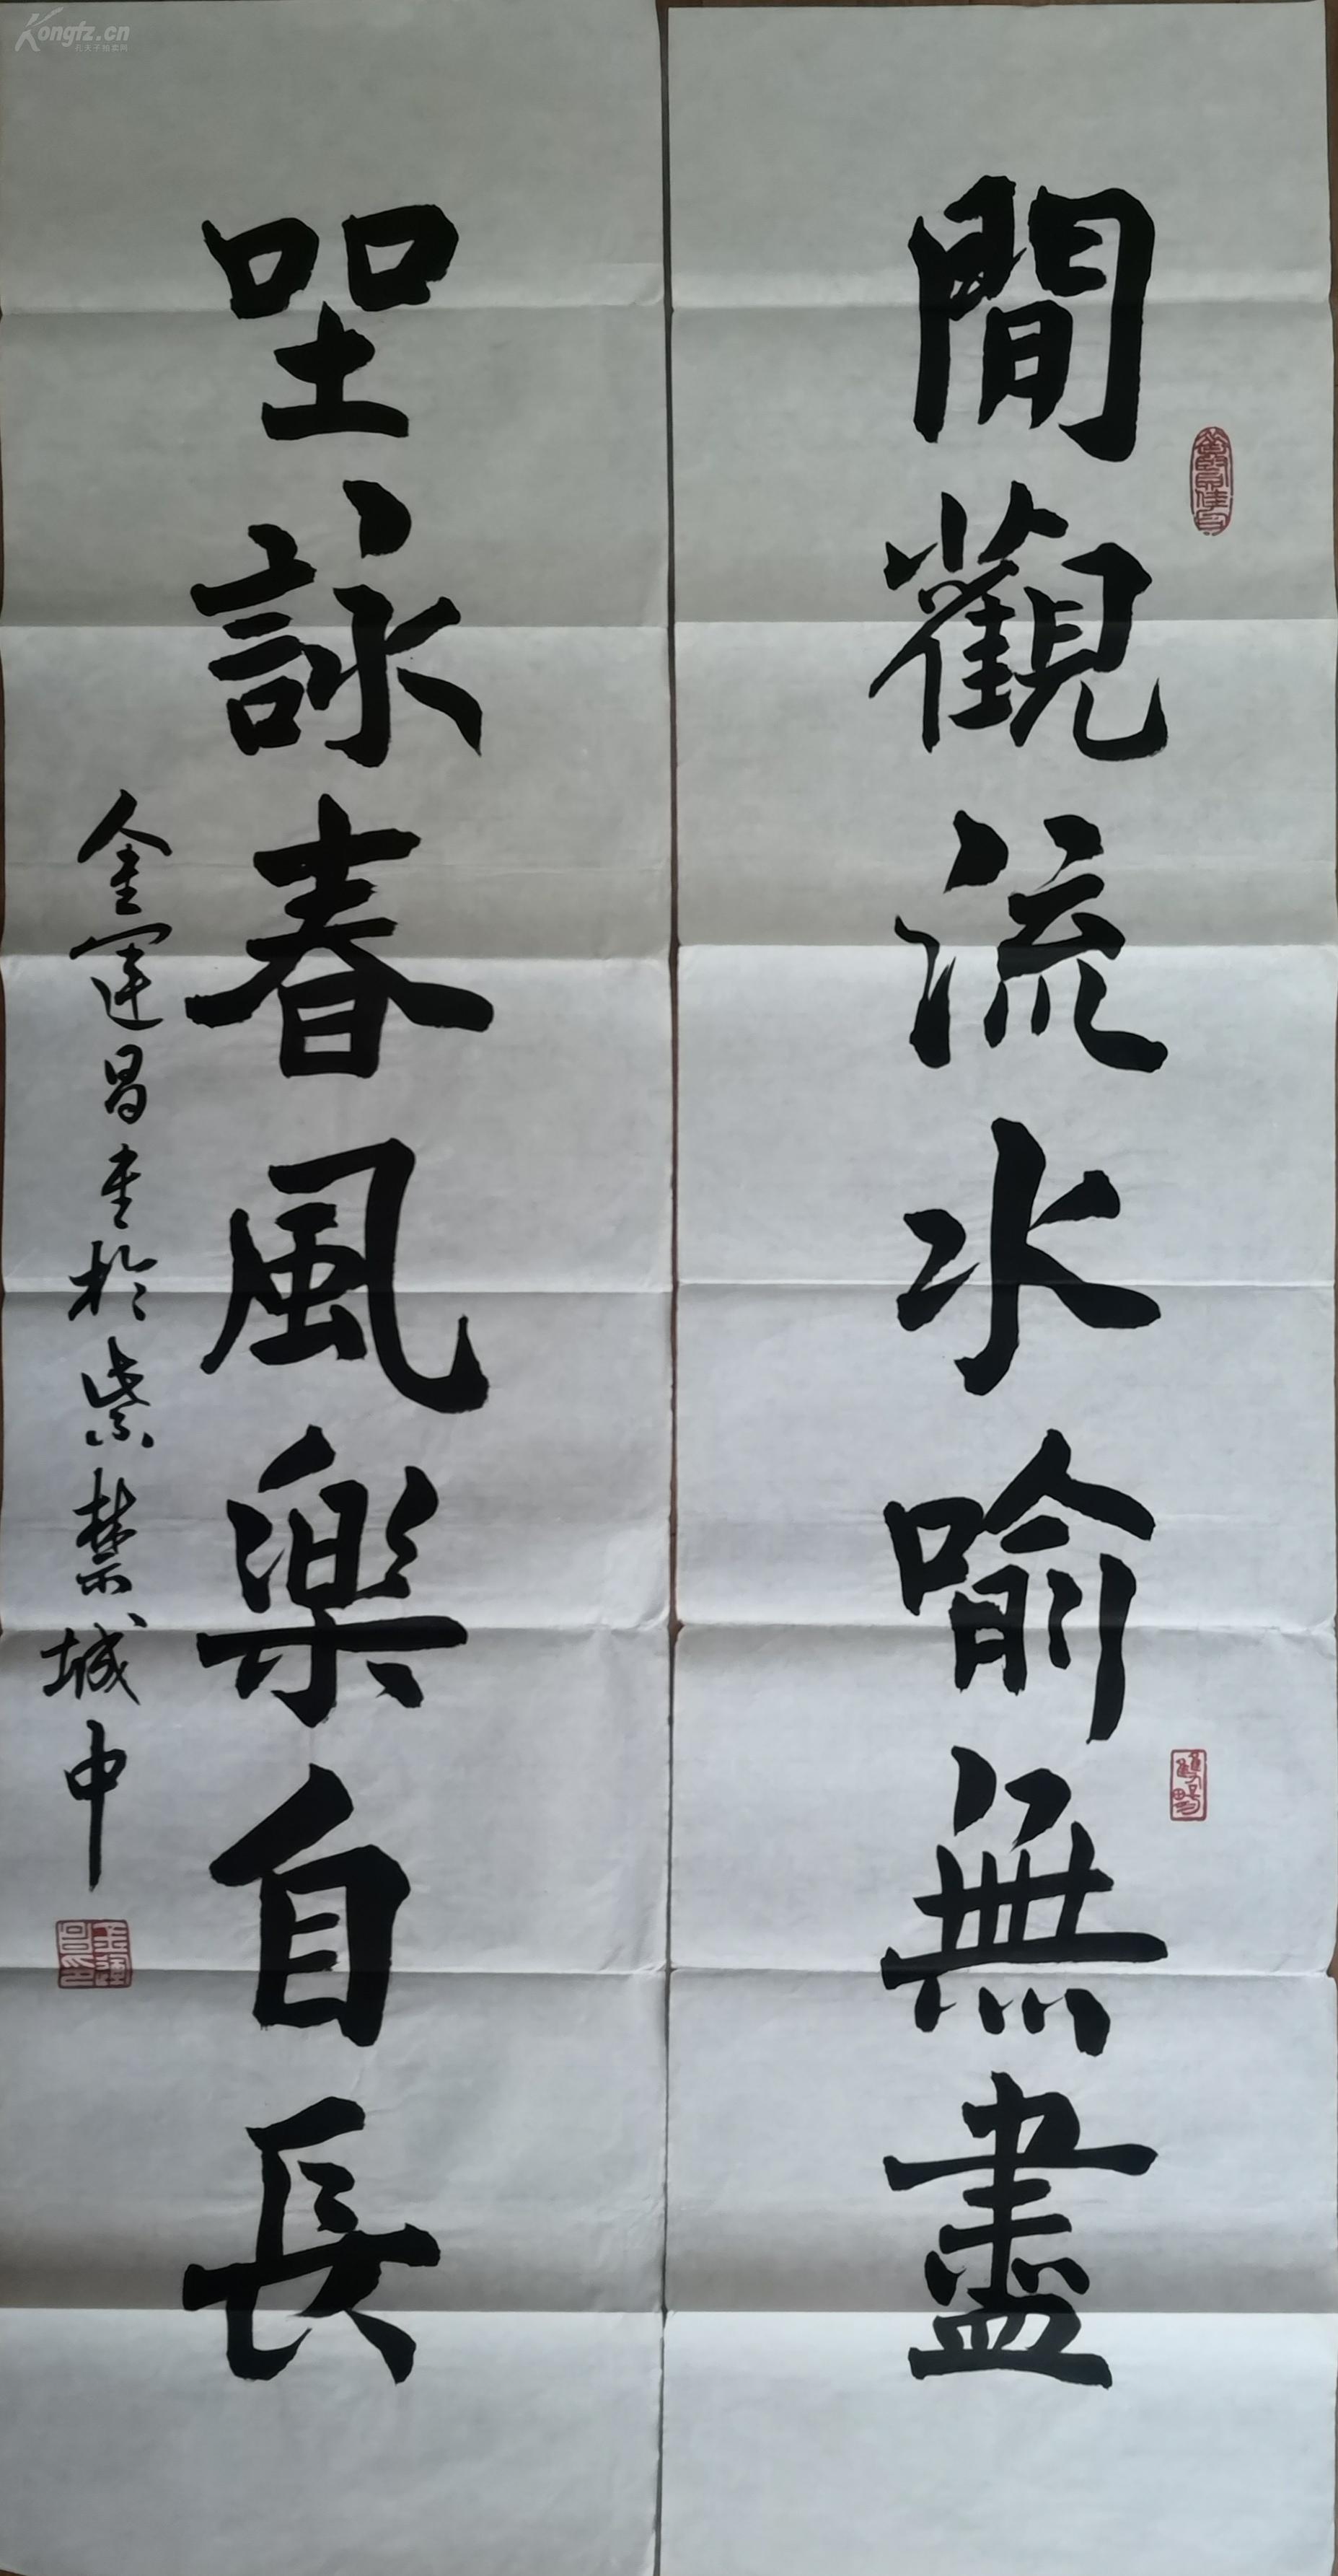 閒觀流水喻無盡
坐詠春風樂自長
金運昌書於紫禁城中
金運昌印
Kongfz.cn